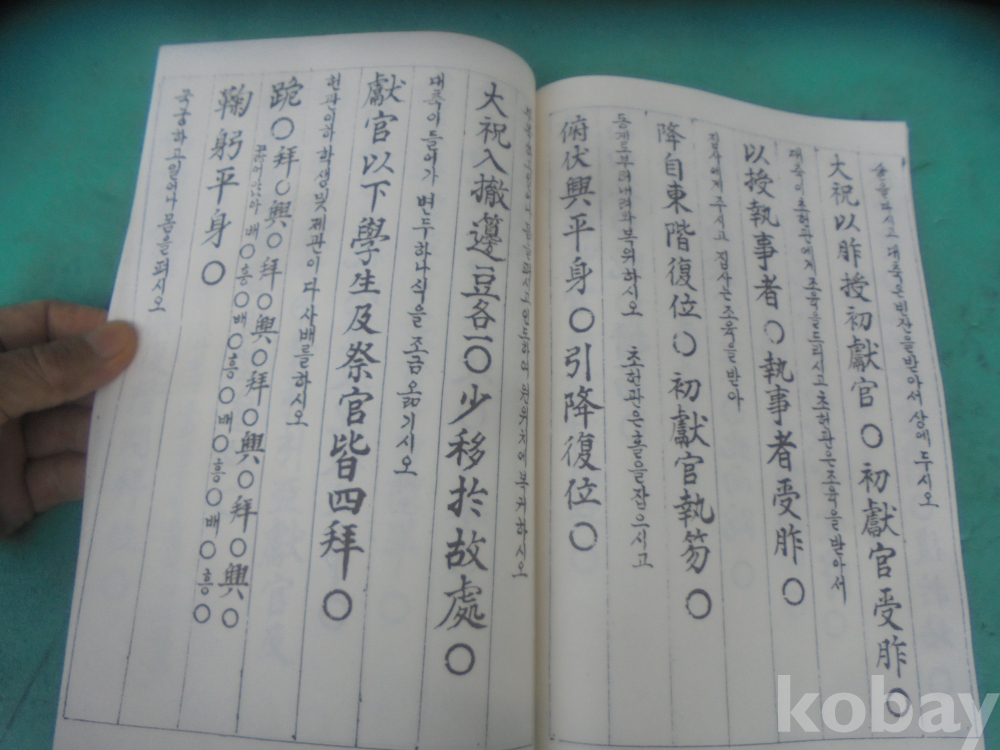 술을 마시고 대축은 빈잔을 받아서 상에 두시오
大祝以胙授初獻官○初獻官受胙○
대축이 초헌관에게 조육을 드리시고 초헌관은 조육을 받아서
以授執事者○執事者受胙○
집사에게 주시고 집사는 조육을 받아
降自東階復位○初獻官執笏○
동계로부터 내려와 복위하시오 초헌관은 홀을 잡으시고
俯伏興平身○引降復位○
大祝入撤籩豆各一○少移於故處○
대축이 들어가 변두 하나식을 조금 옮기시오
獻官以下學生及祭官皆四拜○
헌관이하 학생및 제관이 다 사배를 하시오
跪○拜○興○拜○興○拜○興○拜○興○
꿇어앉아 배○흥○배○흥○배○흥○배○흥○
鞠躬平身○
국궁하고 일어나 몸을 펴시오
kobay